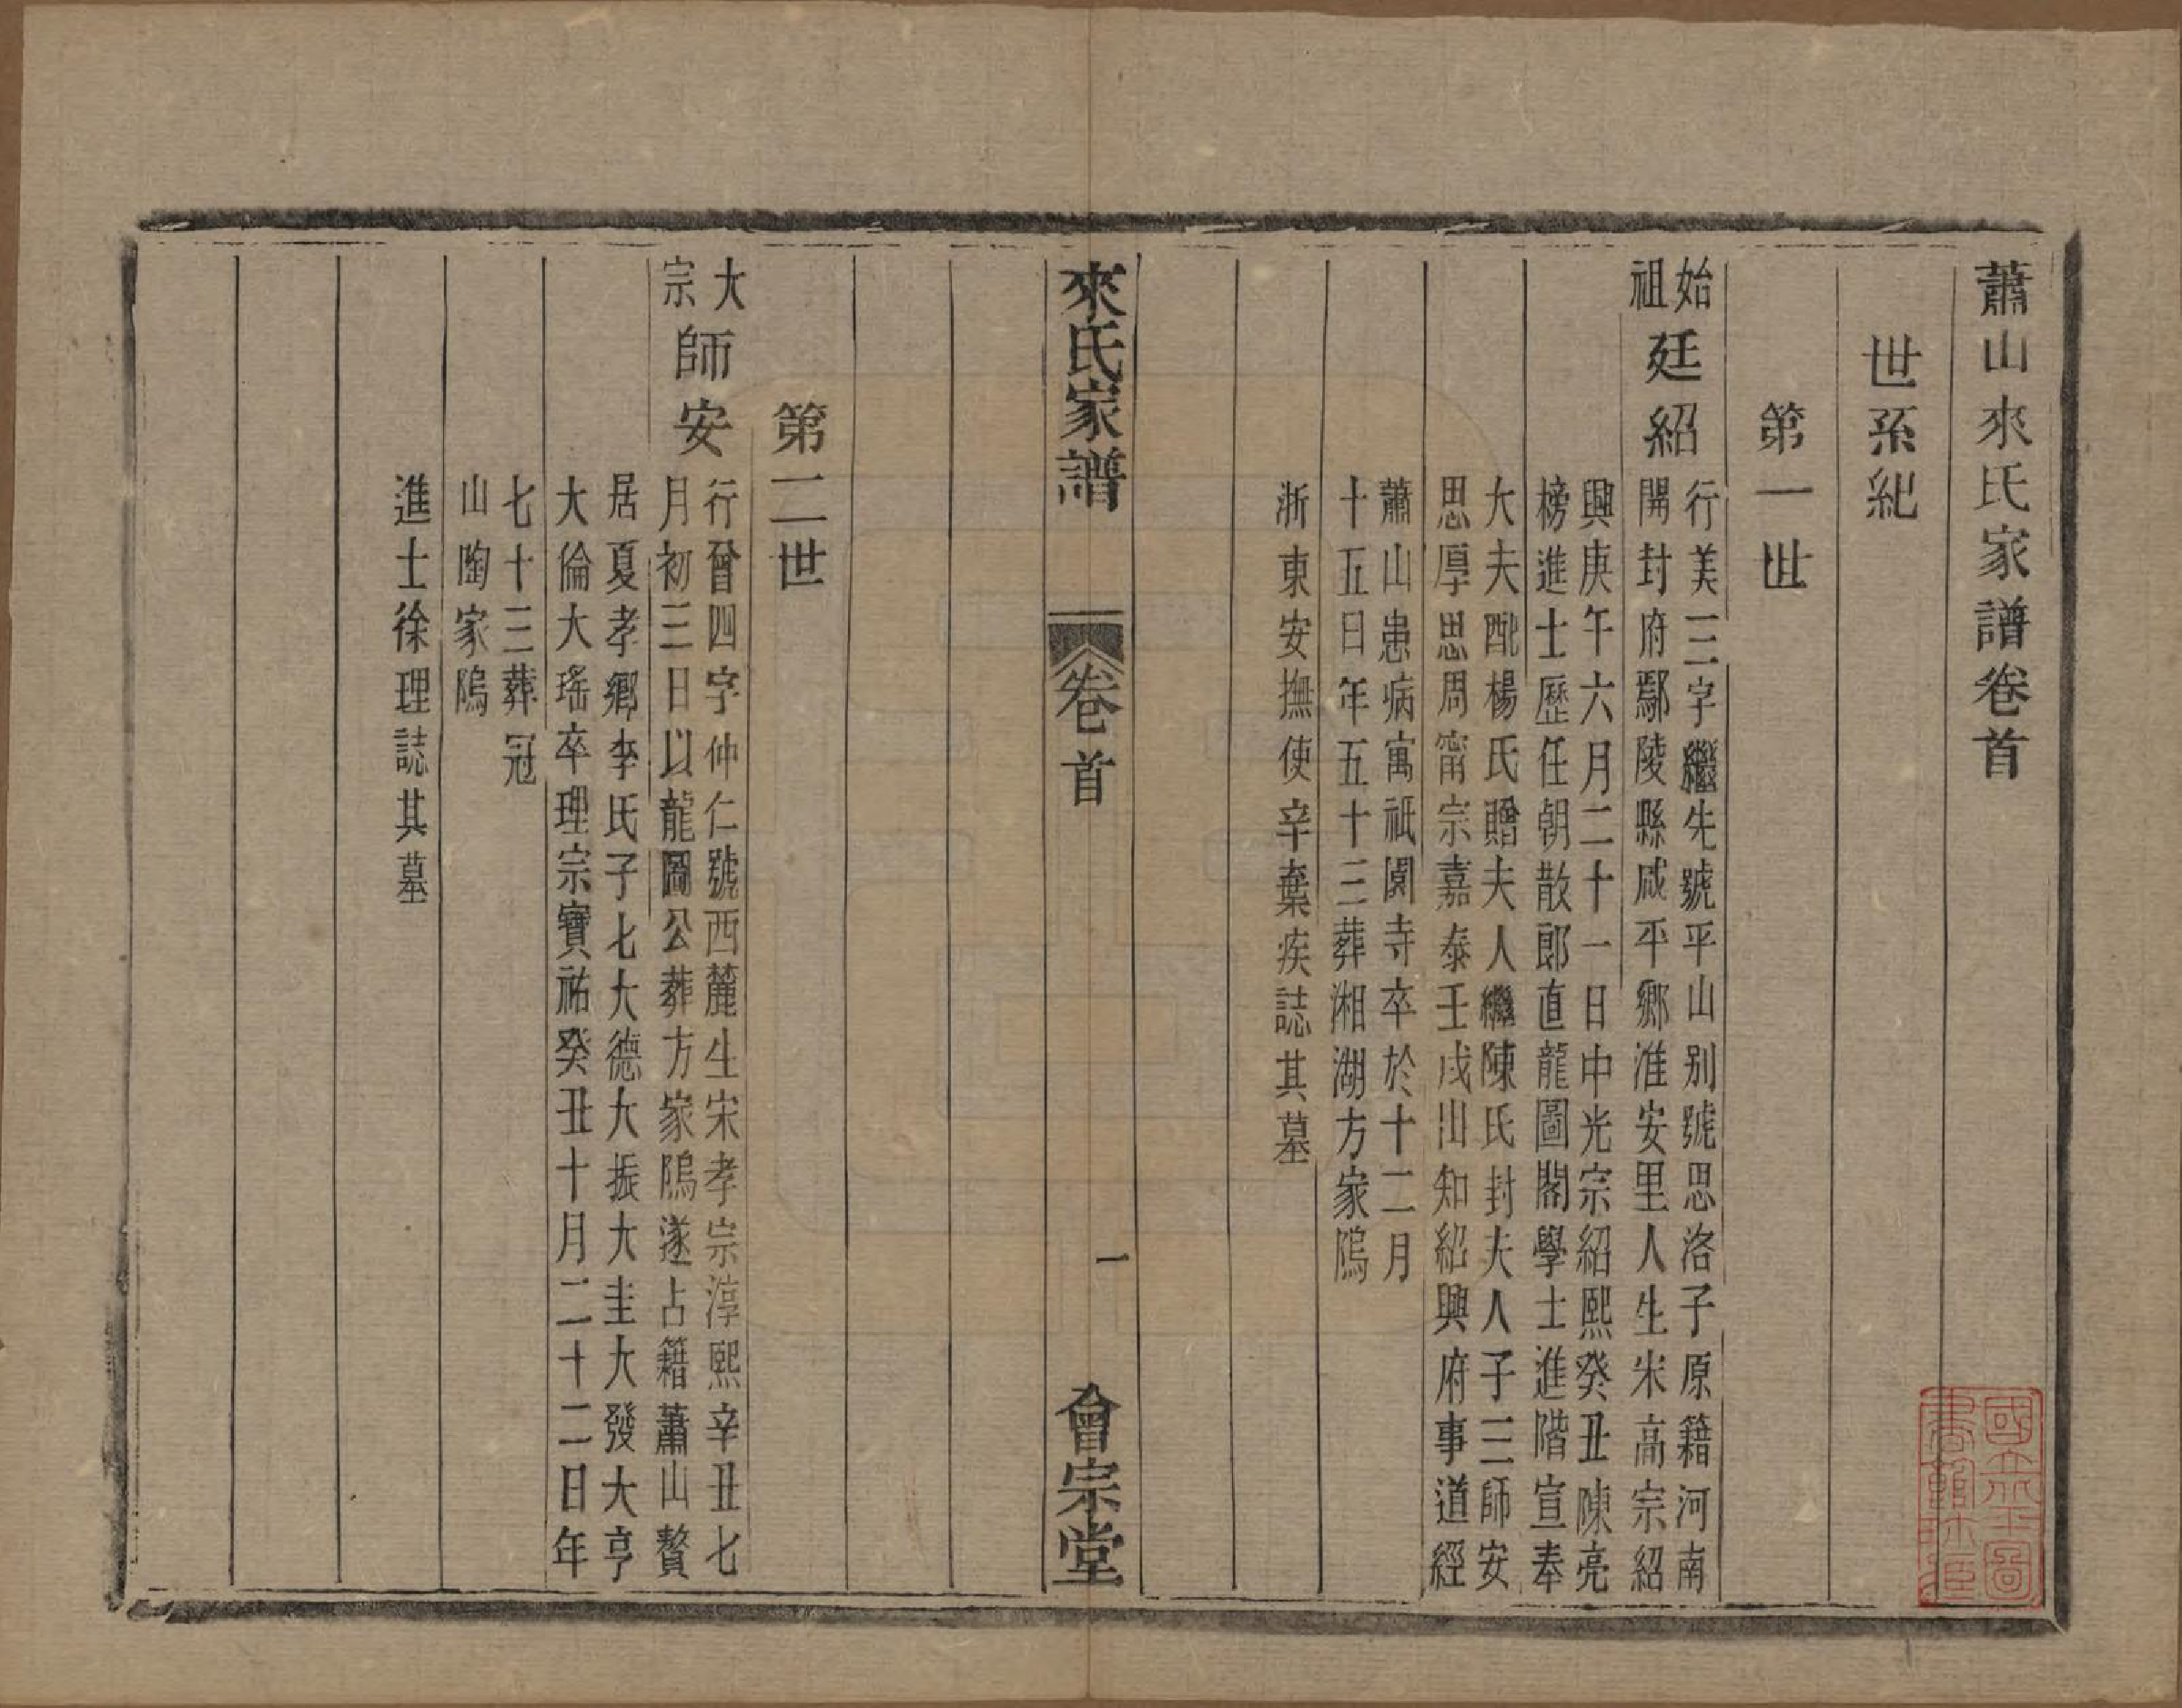 蕭山來氏家譜卷首
世系紀
第一世
始祖
廷紹
行美三字繼先號平山别號思洛子原籍河南
開封府鄢陵縣咸平鄉淮安里人生宋高宗紹
興庚午六月二十一日中光宗紹熙癸丑陳亮
榜進士歷任朝散郎直龍圖閣學士進階宣奉
大夫配楊氏贈夫人繼陳氏封夫人子三師安
思厚思周甯宗嘉泰壬戌出知紹興府事道經
蕭山患病寓祇園寺卒於十二月
十五日年五十三葬湘湖方家隖
浙東安撫使辛棄疾誌其墓
來氏家譜
卷首
一
會宗堂
第二世
大宗
師安
行曾四字仲仁號西麓生宋孝宗淳熙辛丑七
月初三日以龍圖公葬方家隖遂占籍蕭山贅
居夏孝鄉李氏子七大德大振大圭大發大亨
大倫大瑤卒理宗寶祐癸丑十月二十二日年
七十三葬冠
山陶家隖
進士徐理誌其墓